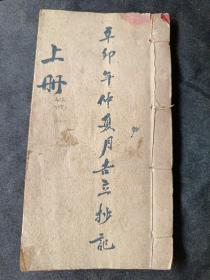 辛卯年仲夏月吉立抄記
上册